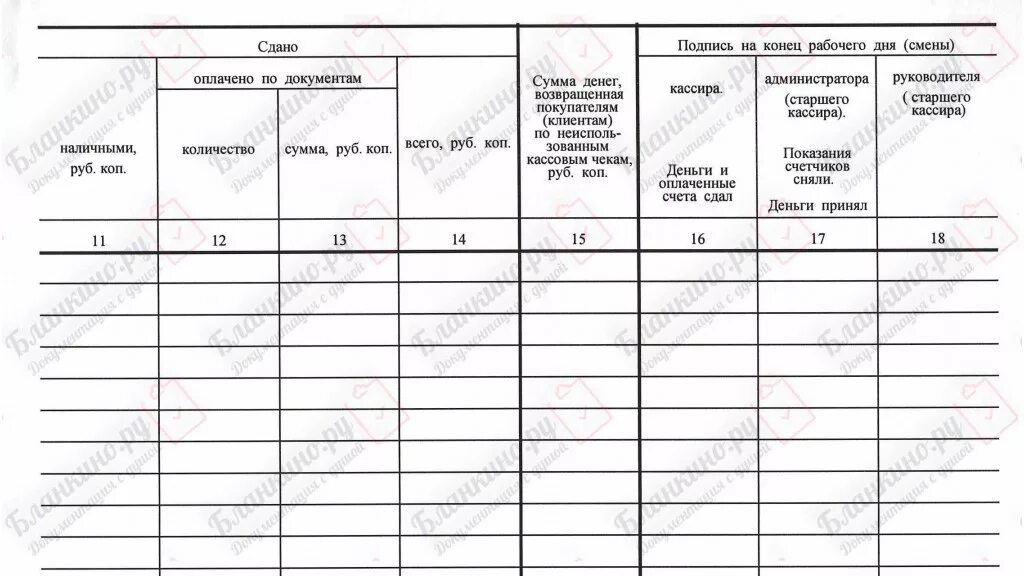 Сдано
Подпись на конец рабочего дня (смены)
наличными,
руб. коп.
оплачено по документам
количество
сумма, руб. коп.
всего, руб. коп.
Сумма денег,
возвращенная
покупателям
(клиентам)
по неисполь-
зованным
кассовым чекам,
руб. коп.
кассира.
Деньги и
оплаченные
счета сдал
администратора
(старшего
кассира).
Показания
счетчиков
сняли.
Деньги принял
руководителя
( старшего
кассира)
11 12 13 14 15 16 17 18
Бланкино.ру
Документация с душой